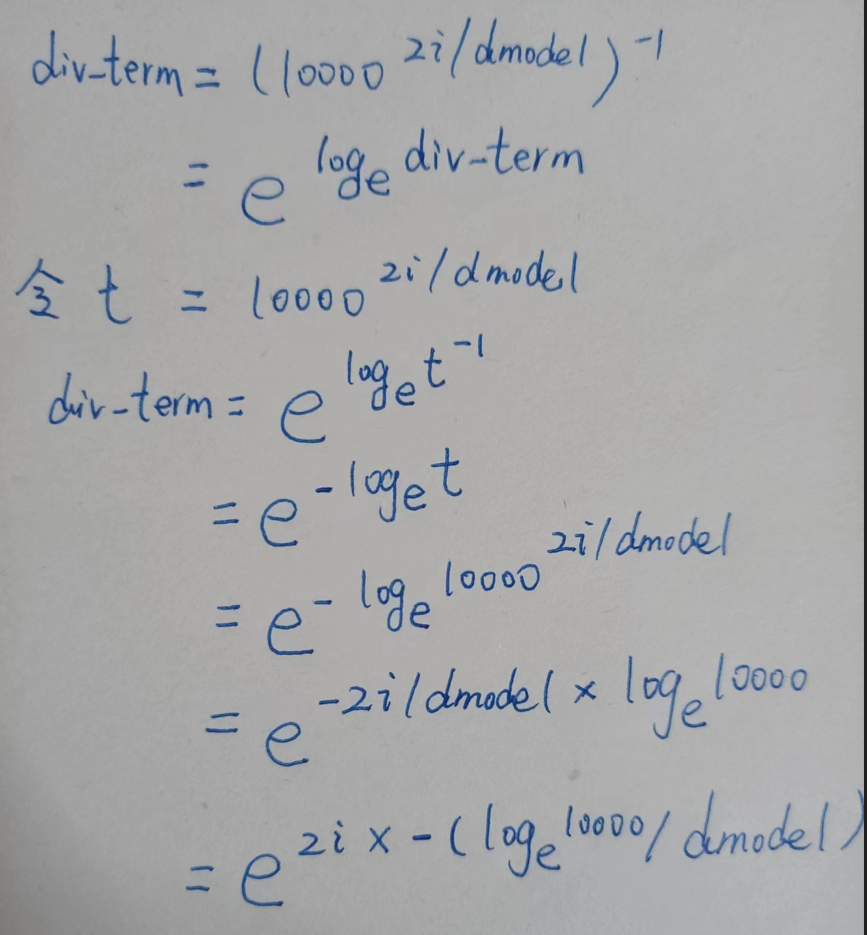 div-term = (10000^{2i/dmodel})^{-1}
= e^{log_e div-term}
令 t = 10000^{2i/dmodel}
div-term = e^{log_e t^{-1}}
= e^{-log_e t}
= e^{-log_e 10000^{2i/dmodel}}
= e^{-2i/dmodel × log_e 10000}
= e^{2i × -(log_e 10000/dmodel)}